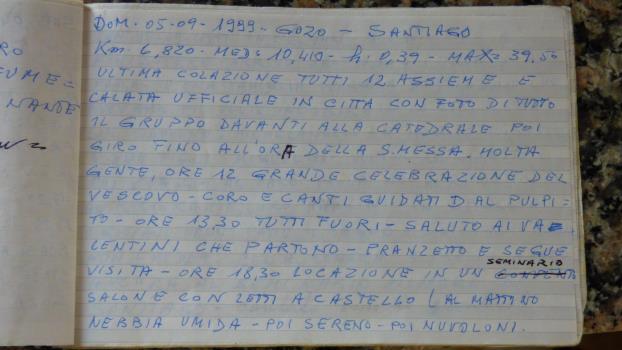 DOM. 05-09-1999 - GOZO - SANTIAGO
Km. 6,820 - MED= 10,410 - h. 0,39 - MAX= 39.50
ULTIMA COLAZIONE TUTTI 12 ASSIEME E
CALATA UFFICIALE IN CITTA CON FOTO DI TUTTO
IL GRUPPO DAVANTI ALLA CATEDRALE POI
GIRO FINO ALL'ORA DELLA S.MESSA. MOLTA
GENTE, ORE 12 GRANDE CELEBRAZIONE DEL
VESCOVO - CORO E CANTI GUIDATI DAL PULPI=
TO - ORE 13,30 TUTTI FUORI - SALUTO AI VA=
LENTINI CHE PARTONO - PRANZETTO E SEGUE
VISITA - ORE 18,30 LOCAZIONE IN UN SEMINARIO
SALONE CON LETTI A CASTELLO (AL MATTINO
NEBBIA UMIDA - POI SERENO - POI NUVOLONI.
RO
FUME=
NANTE